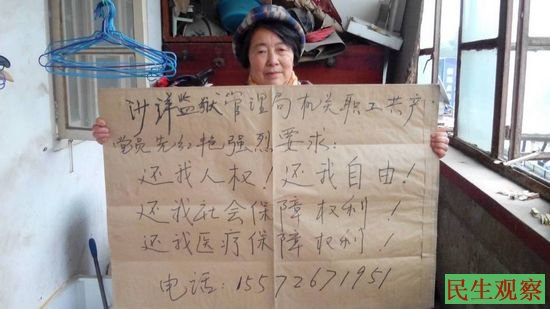 沙洋监狱管理局机关职工共产
党员先红艳强烈要求:
还我人权!还我自由!
还我社会保障权利!
还我医疗保障权利!
电话:15572671951
民生观察